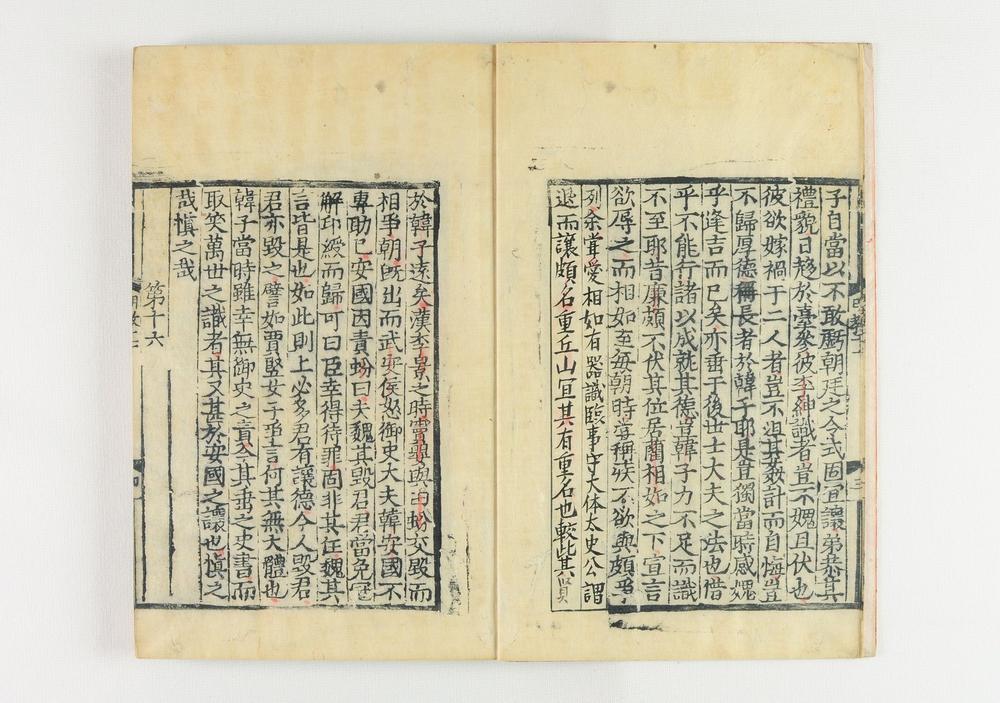 子自當以不敢虧朝廷之令式固宜讓弟恭其
禮貌日趍於臺叅彼李紳識者豈不媿且伏也
彼欲嫁禍于二人者豈不沮其姦計而自悔豈
不歸厚德稱長者於韓子耶是豈獨當時感媿
乎逢吉而已矣亦垂于後世士大夫之法也惜
乎不能行諸以成就其德豈韓子力不足而識
不至耶昔廉頗不伏其位居藺相如之下宣言
欲辱之而相如至每朝時甞稱疾不欲與頗爭
列余甞愛相如有器識臨事守大体太史公謂
退而讓頗名重丘山宜其有重名也較此其賢
於韓子遠矣漢孝景之時竇嬰與田蚡交毀而
相爭朝既出而武安侯怒御史大夫韓安國不
專助己安國因責蚡曰夫魏其毀君君當免冠
解印綬而歸可曰臣幸得待罪固非其任魏其
言皆是也如此則上必多君有讓德今人毀君
君亦毀之譬如賈竪女子爭言何其無大體也
韓子當時雖幸無御史之責今其垂之史書而
取笑萬世之識者其又甚於安國之讓也慎之
哉慎之哉
第十六